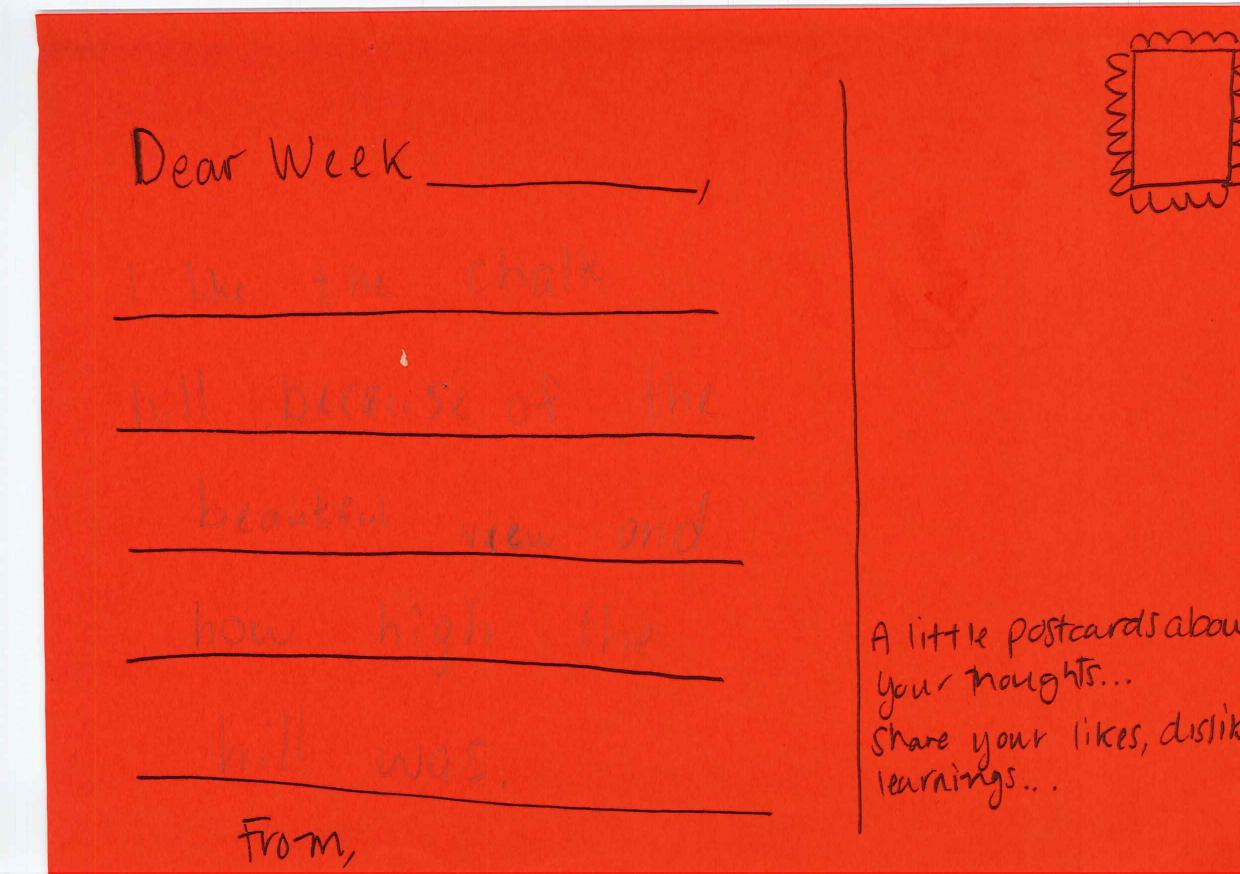 Dear Week ________,
I like the chalk
hill because of the
beautful view and
how high the
hill was.
From,
A little postcards abou
your thoughts...
Share your likes, dislik
learnings...